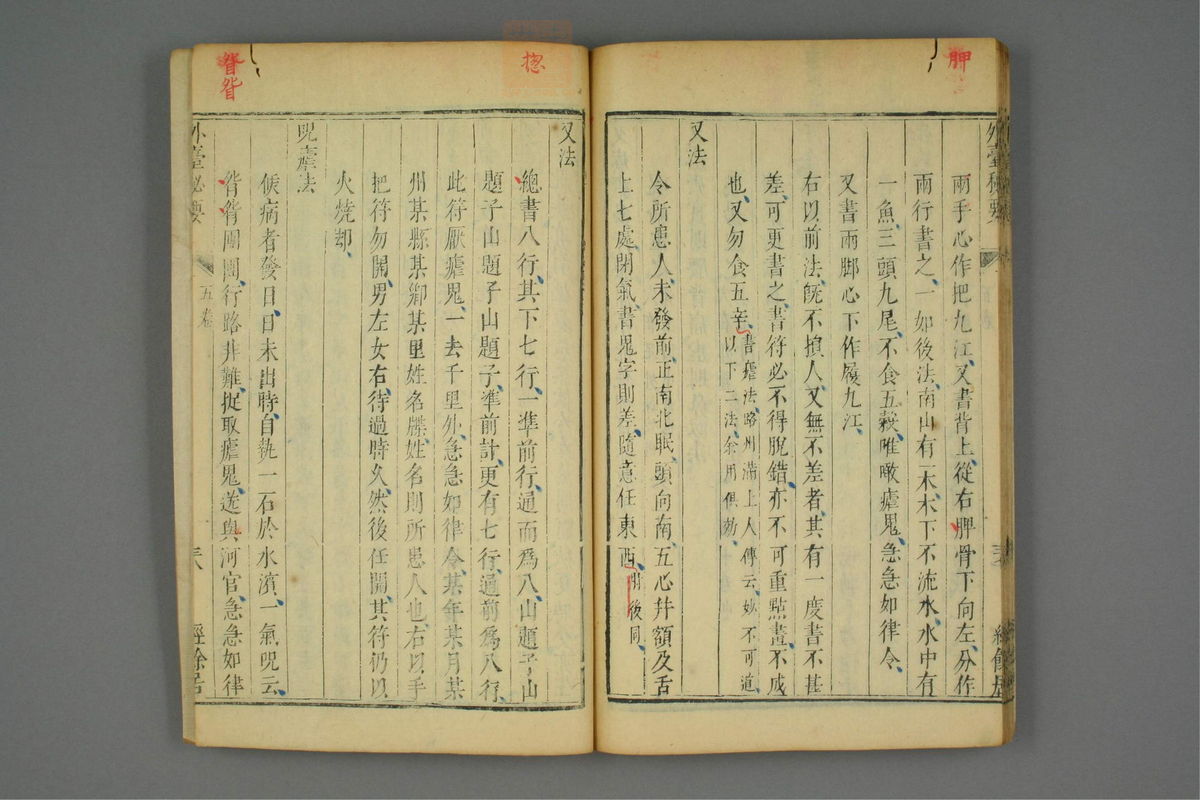 胛
外臺秘要
兩手心作把九江又書背上從右胛骨下向左分作
兩行書之一如後法南山有一木木下不流水水中有
一魚三頭九尾不食五穀唯噉瘧鬼急急如律令
又書兩脚心下作履九江
右以前法既不損人又無不差者其有一度書不甚
差可更書之書符必不得脫錯亦不可重點畫不成
也又勿食五辛書瘧法路州滿上人傳云妙不可道
以下二法余用俱効
又法
令所患人未發前正南北眠頭向南五心并額及舌
上七處閉氣書鬼字則差隨意任東西開後同
揔
又法
總書八行其下七行一準前行通而爲八山題子山
題子山題子山題子準前計更有七行通前爲八行
此符厭瘧鬼一去千里外急急如律令某年某月某
州某縣某鄉某里姓名牒姓名則所患人也右以手
把符勿開男左女右待過時久然後任開其符仍以
火燒却
呪瘧法
候病者發日日未出時自執一石於水濱一氣呪云
眢眢團團行路非難捉取瘧鬼送與河官急急如律
外臺秘要
五卷
三八
經餘居